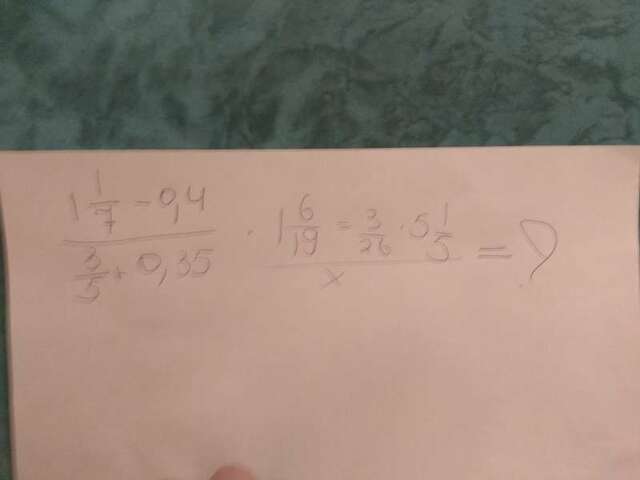 1 1/7 - 0,4 / 3/5 + 0,35 · 1 6/19 = 3/26 · 5 1/5 / x = ?